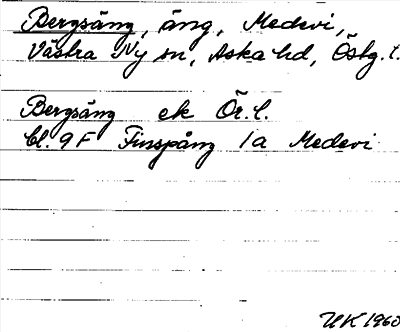 Bergsäng, äng, Medevi,
Västra Ny sn, Aska hd, Östg. l.
Bergsäng ek Ör. l.
Bl. 9 F Finspång 1a Medevi
UK 1960